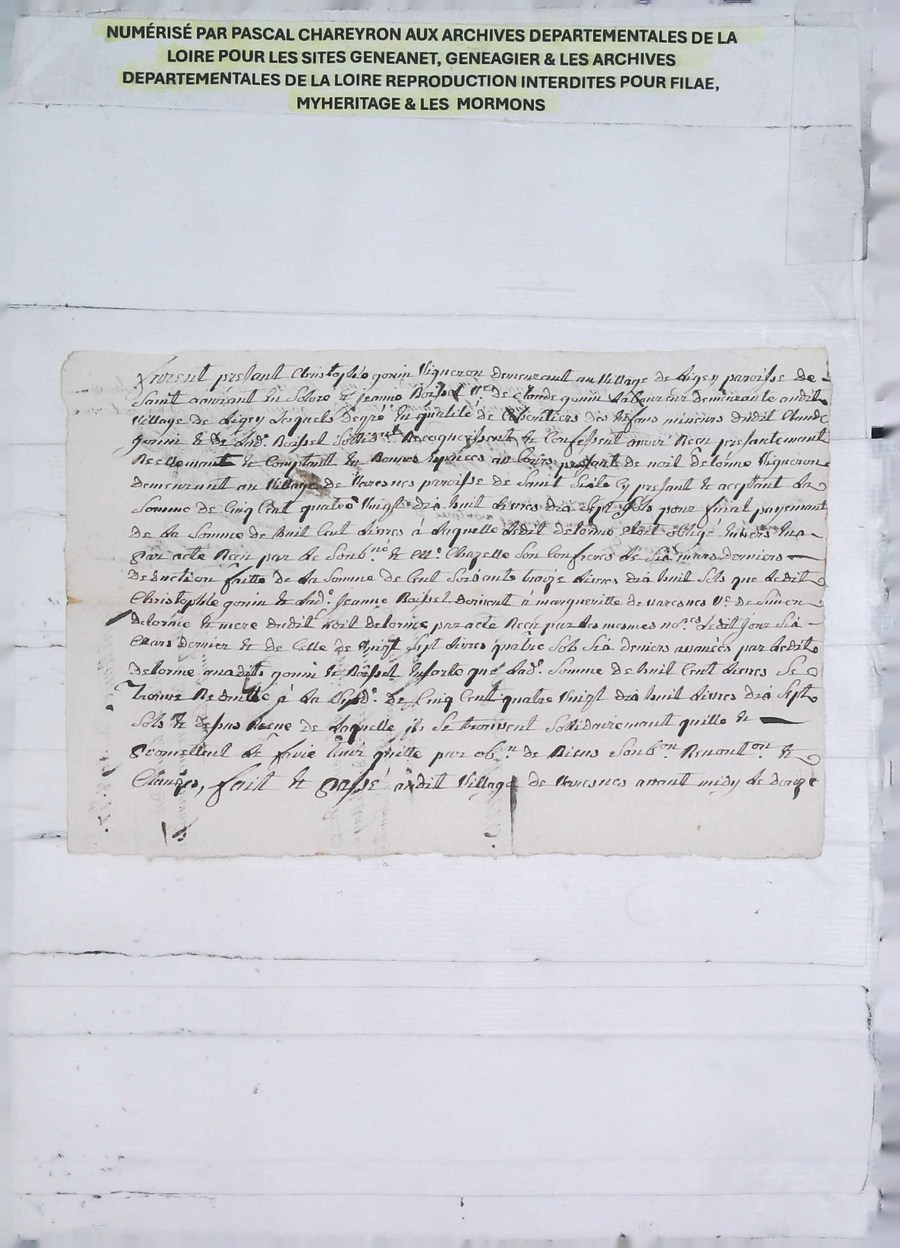 NUMÉRISÉ PAR PASCAL CHAREYRON AUX ARCHIVES DEPARTEMENTALES DE LA
LOIRE POUR LES SITES GENEANET, GENEAGIER & LES ARCHIVES
DEPARTEMENTALES DE LA LOIRE REPRODUCTION INTERDITES POUR FILAE,
MYHERITAGE & LES MORMONS
furent presant Christophle gonin Vigneron demeurant au Village de paroisse de
Saint & Jeanne Boissel Ve. de Claude gonin Laboureur demeurante audit
Village de Lesquels degré en qualité de des Enfans mineurs dudit Claude
gonin & Boissel & Confessent avoir Receu presantement
Reellement & Comptant En Bonnes Espèces au Cours presant de noil delorme Vigneron
demeurant au Village de Varesnes paroisse de Saint Cy presant & aceptant La
Somme de Cinq Cent quatre Vingt dix huit Livres dix Sept Sols pour final payement
de La Somme de huit Cent Livres à Laquelle Ledit delorme Etoit obligé Envers
par acte Receu par Le & Me. Chazelle Son Confrere Le Six mars dernier
deduction faitte de La Somme de Cent Soixante treize Livres dix huit Sols que Ledit
Christophle gonin & Lade. Jeanne Boissel doivent à margueritte de varesnes Ve. de Simon
delorme & mere dudit noil delorme par acte Receu par Les mesmes nores Ledit Jour Six
Mars dernier & de Celle de Vingt Sept Livres quatre Sols Six deniers avancés par Ledit
delorme auxdits gonin & Boissel Ensorte que Lade. Somme de huit Cent Livres Se
trouve Reduitte à La Susde. de Cinq Cent quatre Vingt dix huit Livres dix Sept
Sols & de Laquelle ils Le tiennent Sollidairemant quitte &
promettent Le faire tenir quitte par obon. de Biens Renonton. &
Clauzes, fait & passé audit Village de Varesnes avant midy Le douze